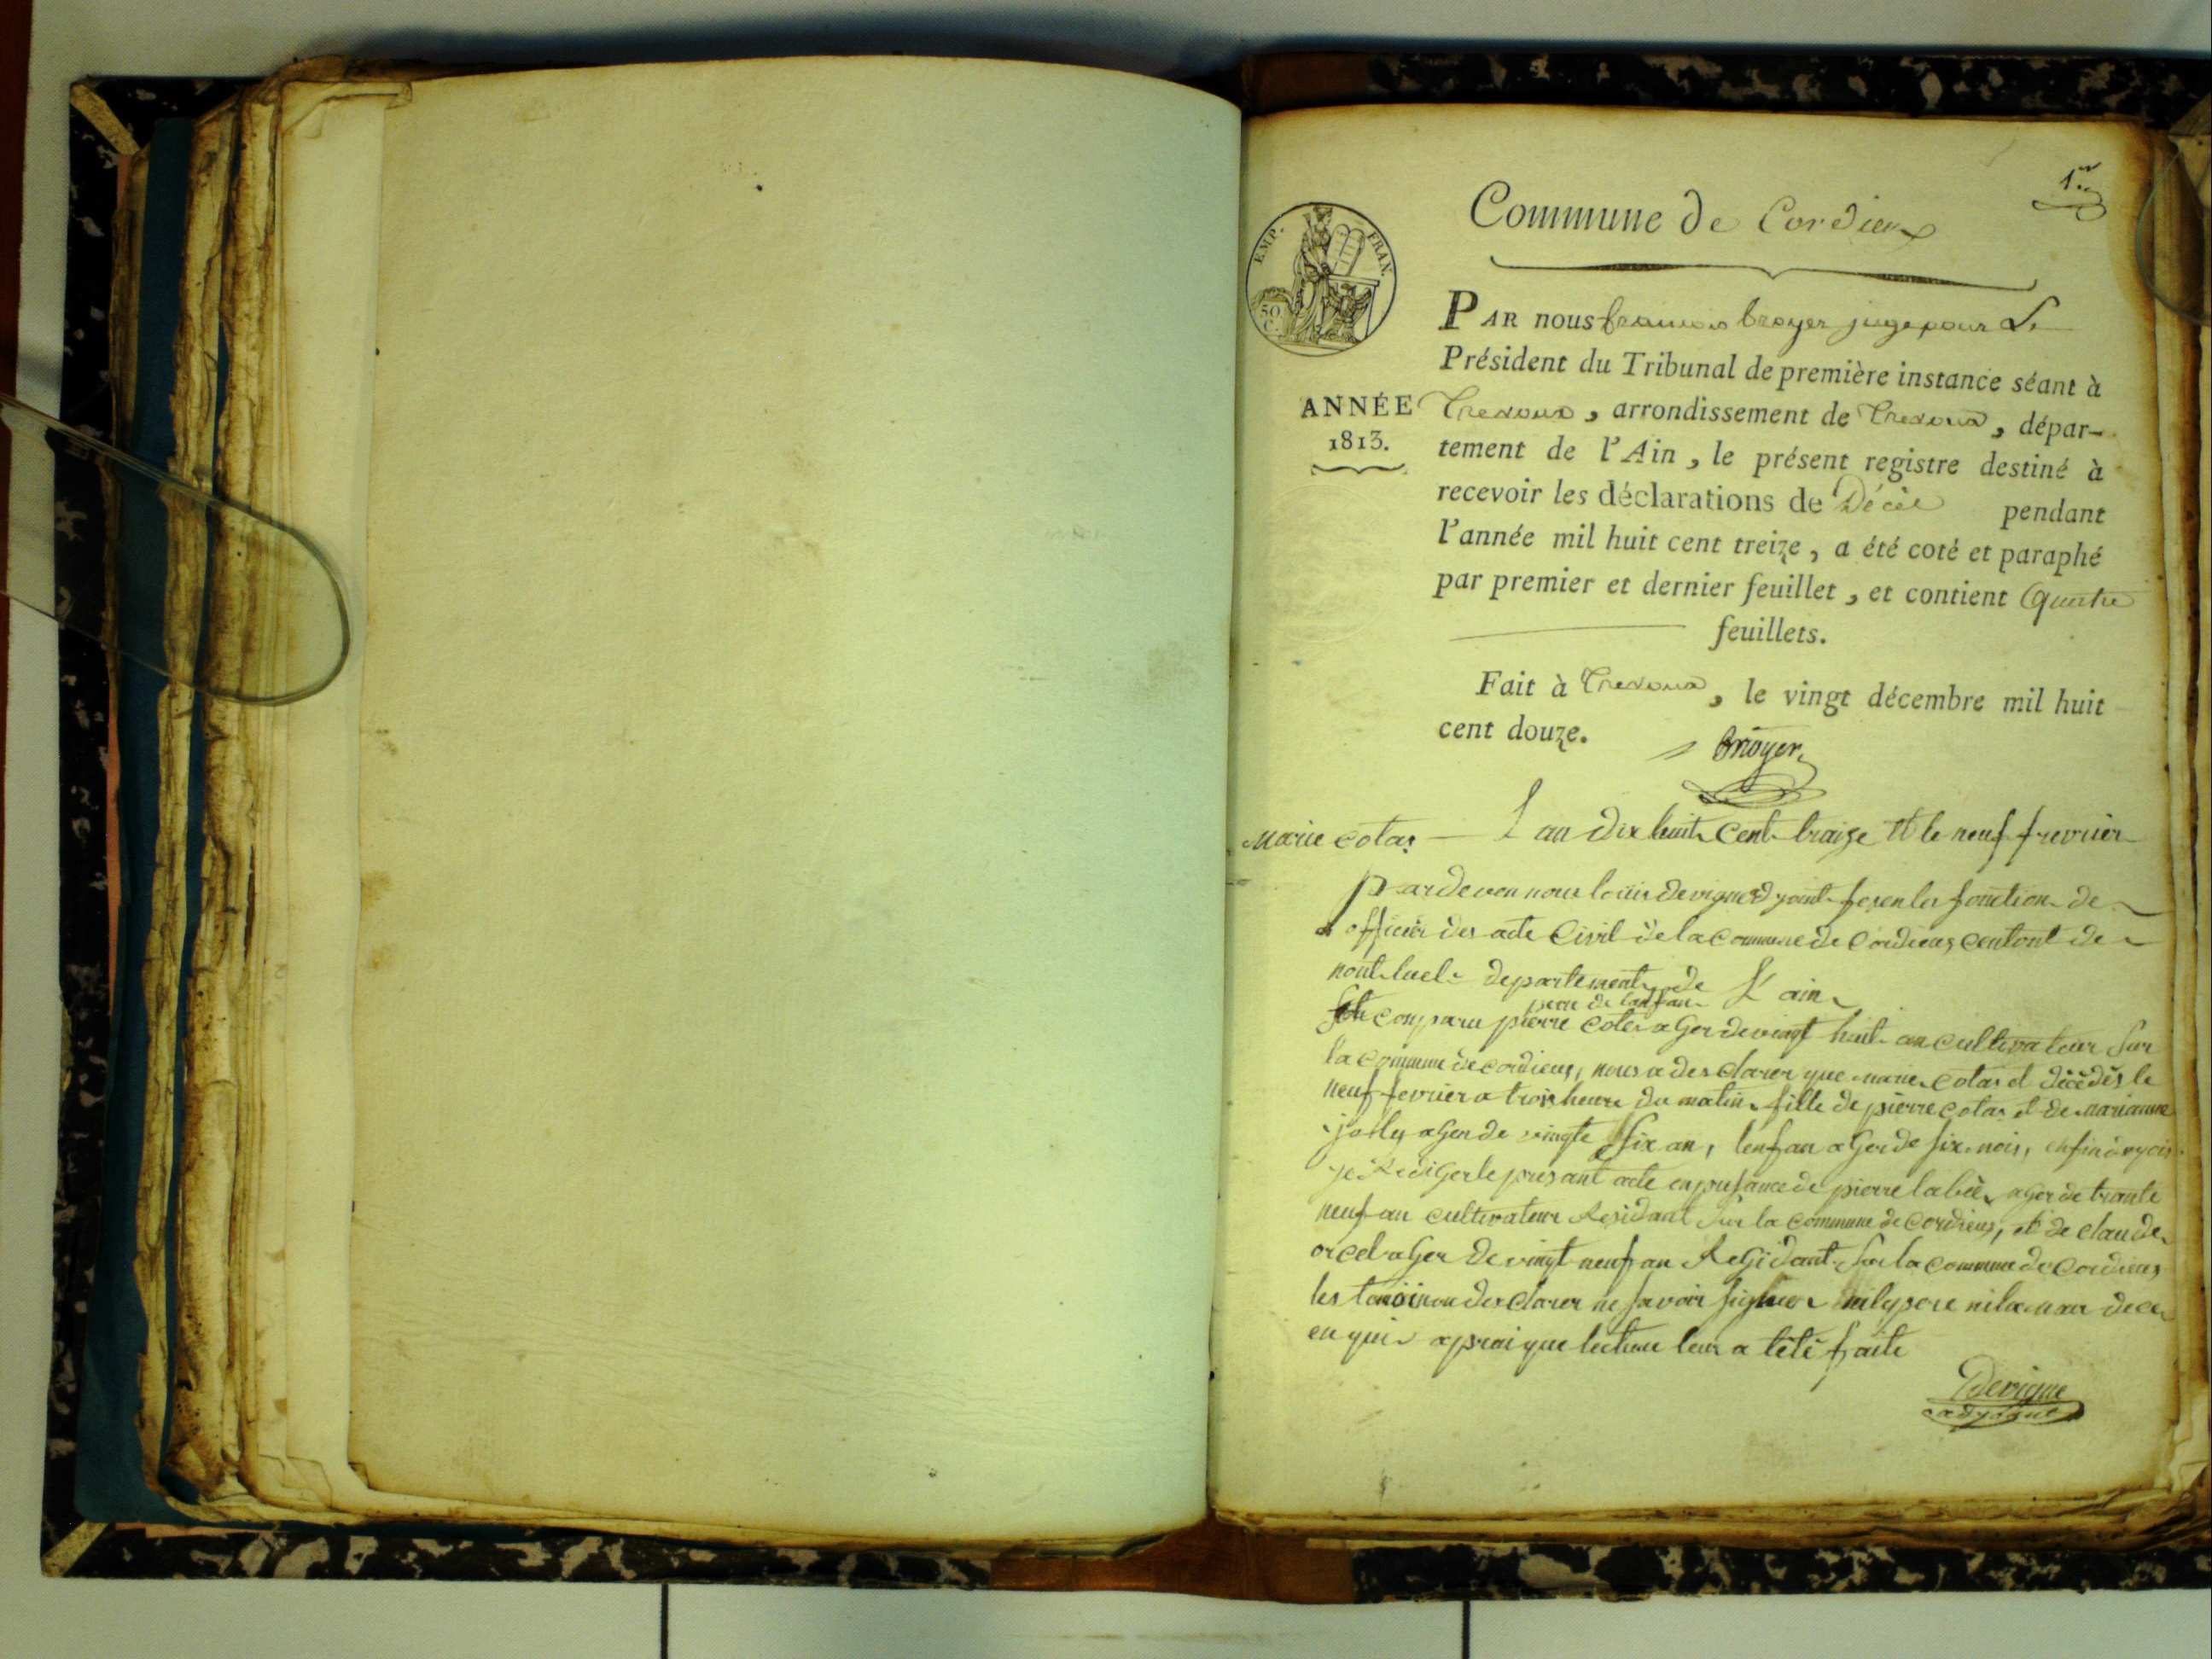 1er
Commune de Cordieux
EMP. FRAN.
50 C.
ANNÉE
1813.
PAR nous francois broyer juge pour Le
Président du Tribunal de première instance séant à
Trevoux, arrondissement de Trevoux, dépar-
tement de l'Ain, le présent registre destiné à
recevoir les déclarations de Décès pendant
l'année mil huit cent treize, a été coté et paraphé
par premier et dernier feuillet, et contient Quatre
feuillets.
Fait à Trevoux, le vingt décembre mil huit
cent douze.
Broyer
Marie cotas
L an dix huit Cent traize et le neuf frevrier
par deven nous louis devigne fesen les fonction de
officier des acte Civil de la commune de Cordieux centont de
mont luel departement de L'ain
pere de lanfan
compara pierre cotas ager de vingt huit an cultivateur sur
la commune de cordieux, nous a des clarer que marie cotas et décédés le
neuf fevrier a trois heure du matin fille de pierre cotas et de marianne
jolly ager de vingte six an, lenfan ager de six mois,
je Rediger le presant acte en presance de pierre labie ager de trante
neuf an cultivateur Residant sur la commune de cordieux, et de claude
orcel ager de vingt neuf an Regidant sur la commune de Cordieux
les temoin on des clarer ne savoir signer ni le pere ni la mere de ce
en qui apraique lecture leur a tété faite
Devigne
adyoint